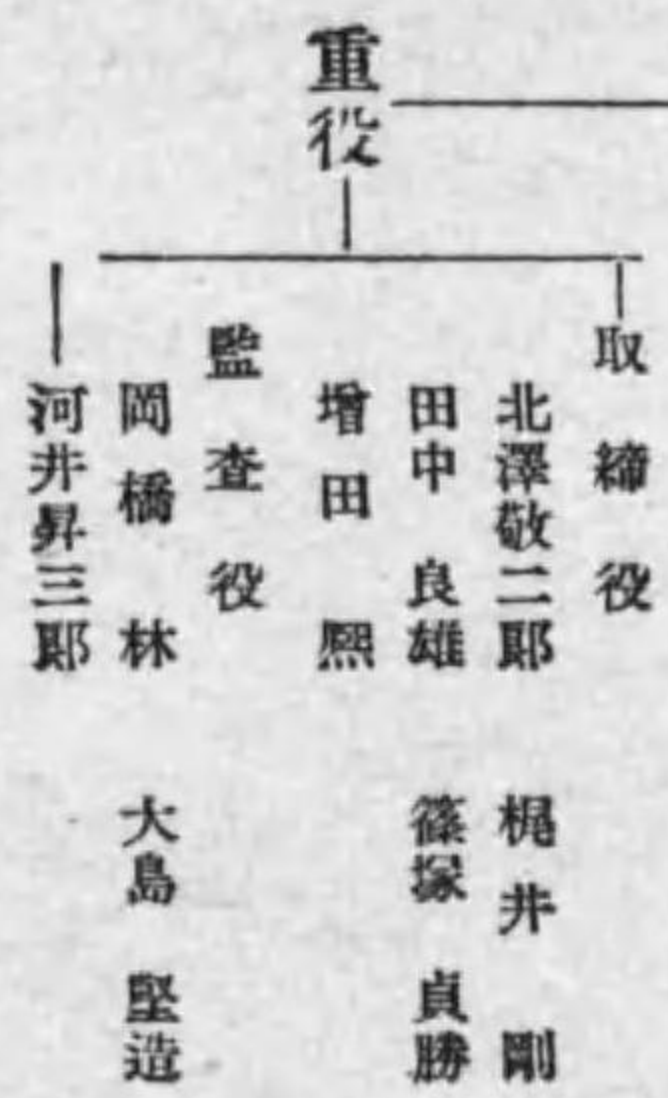 重役
取締役
北澤敬二郎
梶井剛
田中良雄
篠塚貞勝
増田熈
監査役
岡橋林
大島堅造
河井昇三郎